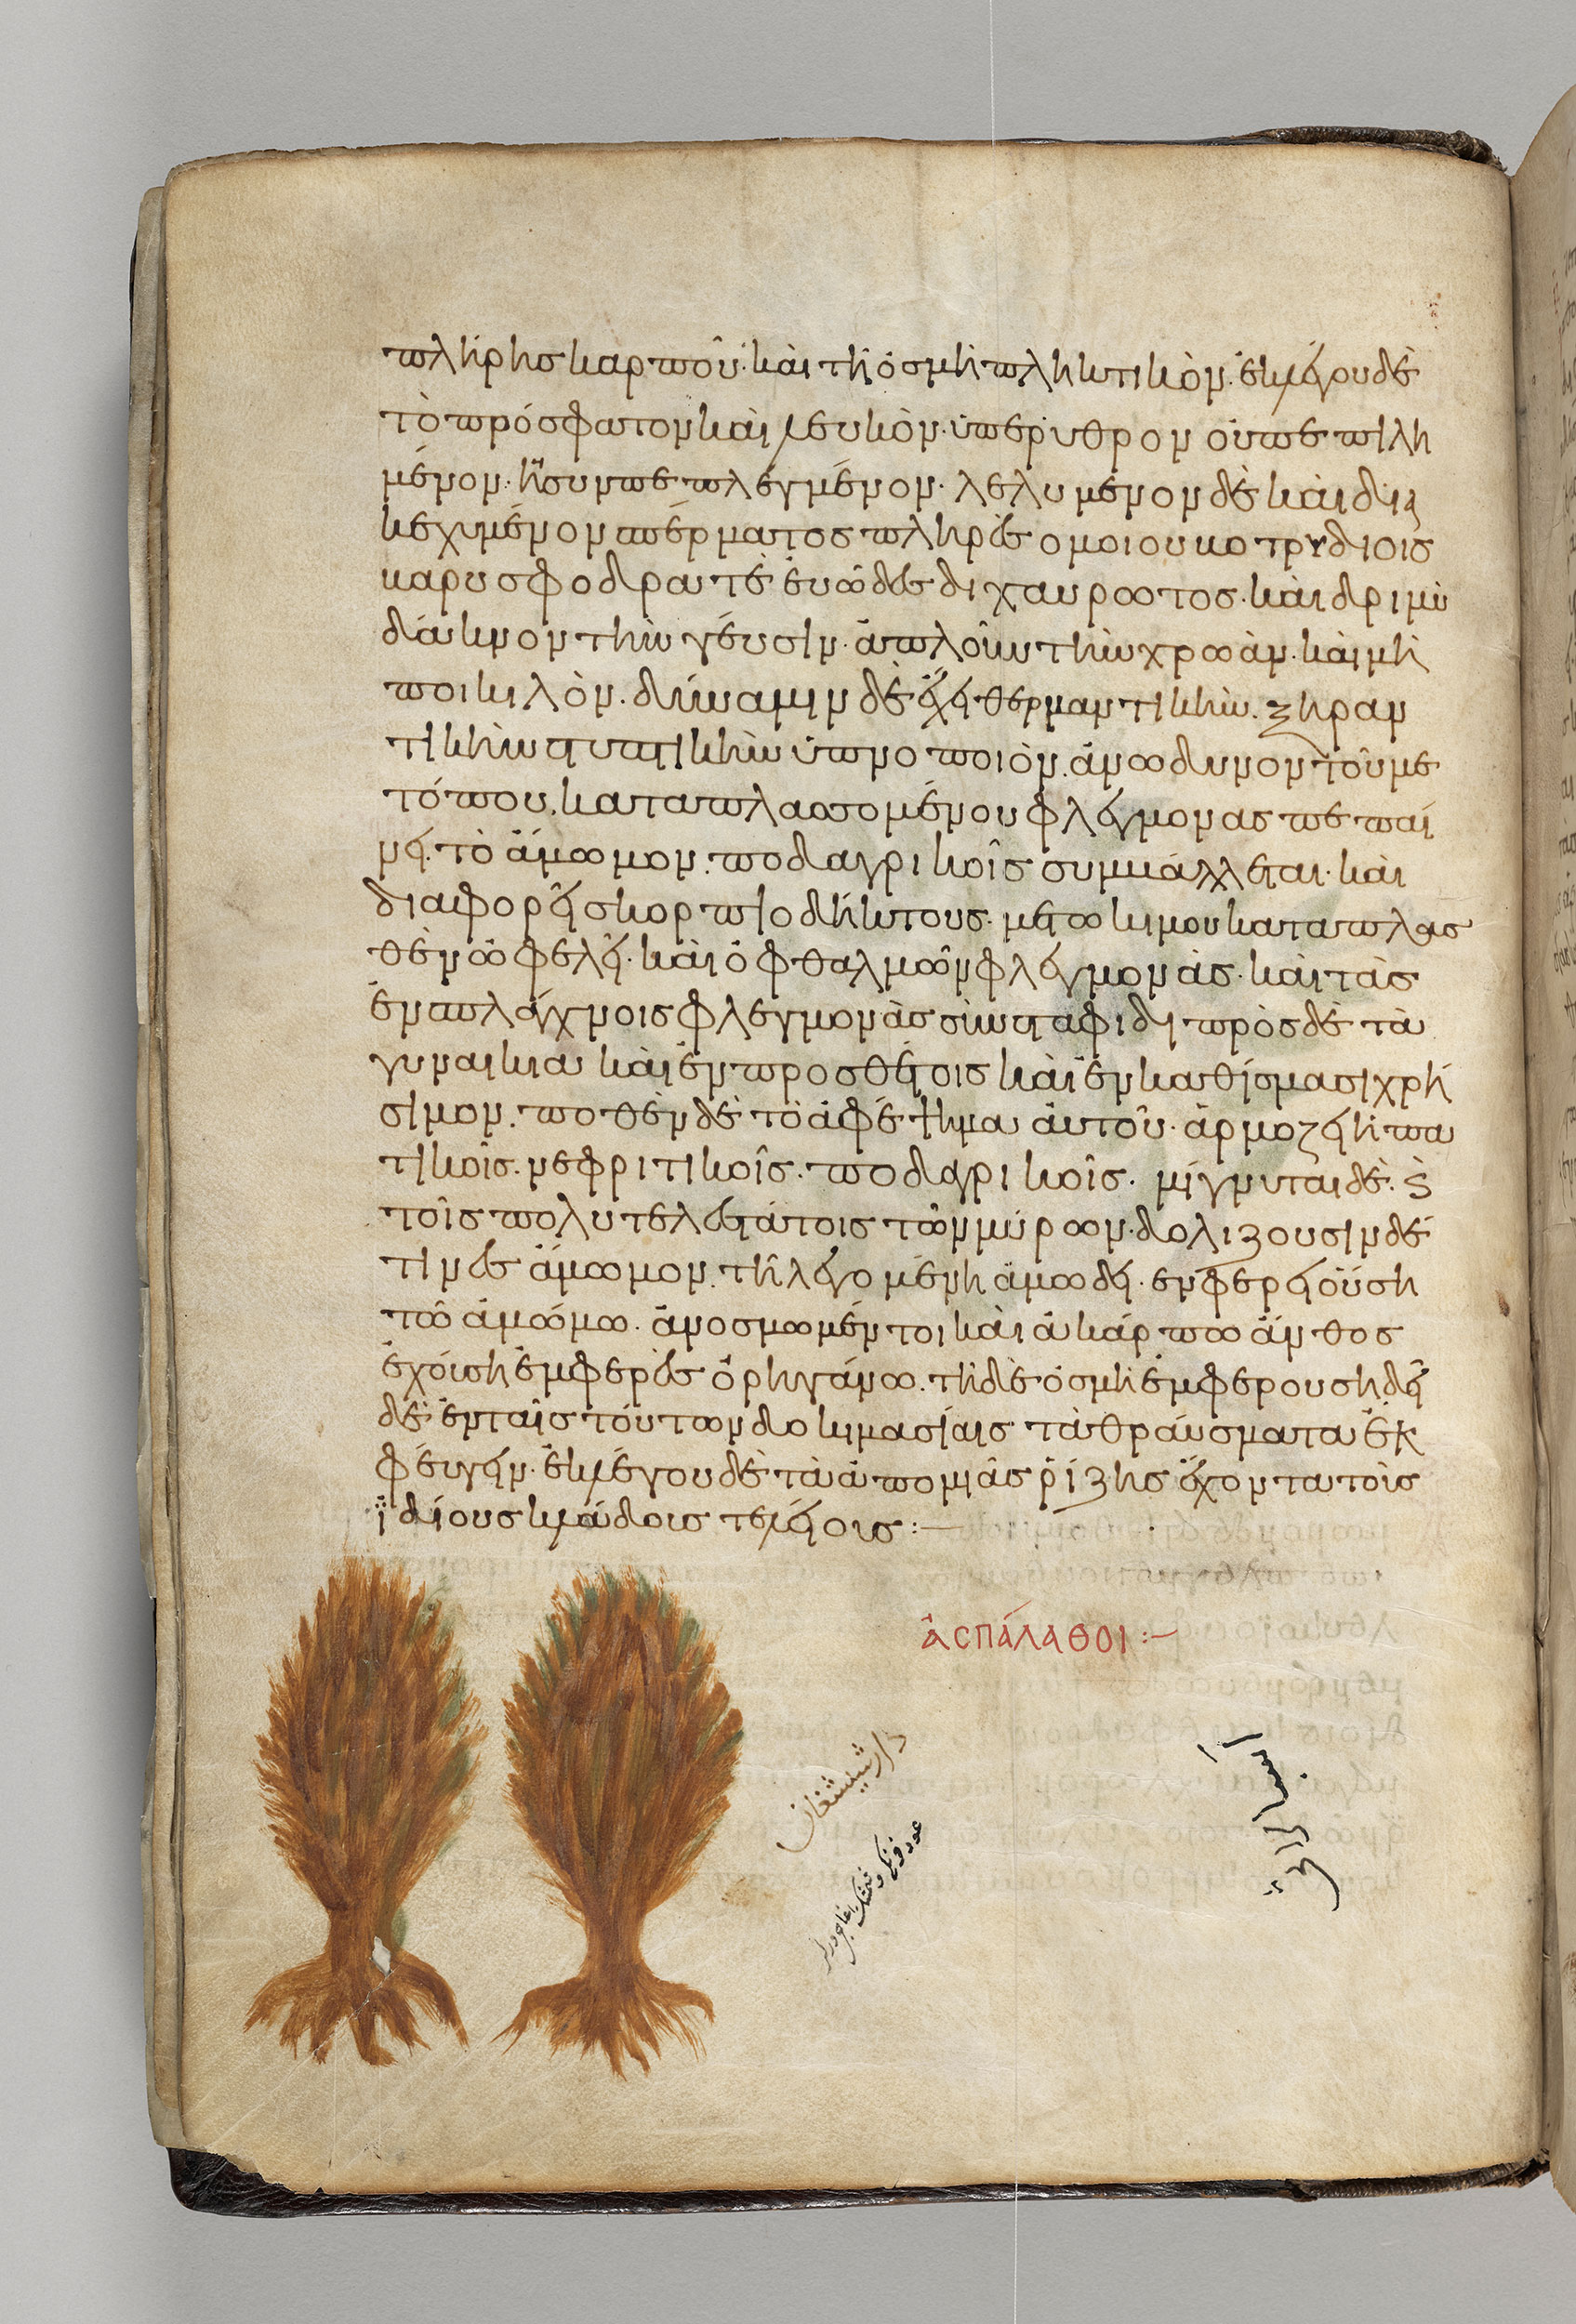 πλήρησ καρποῦ· καὶ τῆ ὀσμῆ πληκτικὸν· ἐκλέγου δὲ
τὸ πρόσφατον καὶ λευκὸν· ὑπέρυθρον οὐ πεπιλη
μένον· ἢ συνπεπλεγμένον· λελυμένον δὲ καὶ δια
κεχυμένον σπέρματοσ πλῆρεσ ομοιου βοτρυδίοισ
σφοδρα τὲ ἐυῶδεσ διχα ευρωτοσ· καὶ δριμὺ
δάκνον τὴν γεῦσιν· ἁπλοῦν τὴν χρωὰν· καὶ μὴ
ποικιλὸν· δύναμιν δὲ ἔχει θερμαντικὴν· ξηραν
τικὴν στυπτικὴν ὑπνοποιὸν· ἀνωδυνον τοῦ με
τόπου· καταπλασσομένου φλεγμονασ πεπαί
νει· τὸ ἄμωμον· ποδαγρικοῖσ συμβάλλεται· καὶ
διαφορεῖ σκορπιοδήκτουσ· μετ ωκιμου καταπλασ
θὲν ὠφελεῖ· καὶ ὀφθαλμῶν φλεγμονὰσ· καὶ τὰσ
ἐν σπλάγχνοισ φλεγμονὰσ σὺν σταφιδι πρὸσ δὲ τὰ
γυναικια καὶ ἐν προσθέτοισ καὶ ἐν καθίσμασι χρή
σιμον· ποθὲν δὲ τὸ ἀφέψημα ἀυτοῦ· ἁρμοζει ἡπα
τικοῖσ· νεφριτικοῖσ· ποδαγρικοῖσ· μίγνυται δὲ· ϛ
τοῖσ πολυτελεστάτοισ τῶν μύρων· δολιζουσιν δὲ
τινὲσ ἄμωμον· τῆ λεγομένη ἀμωδει· ενφερεῖ ούση
τῶ ἀμώμω· ἄνοσμω μέν τοι καὶ ἀκάρπω ἄνθοσ
ἐχόυση ἐμφερὲσ ὀρηγάνω· τῆ δὲ ὀσμῆ ἐμφερουση δεῖ
δὲ ἐν ταῖσ τούτων δοκιμασίαισ τὰ θράυσματα ἐκ
φέυγειν· ἐκλέγου δὲ τὰ ἀπο μιᾶσ ῥίζησ ἔχοντα τοὺσ
ϊδίουσ κλάδουσ τελείουσ :—
ἀσπάλαθοι :—
دارشیشغان